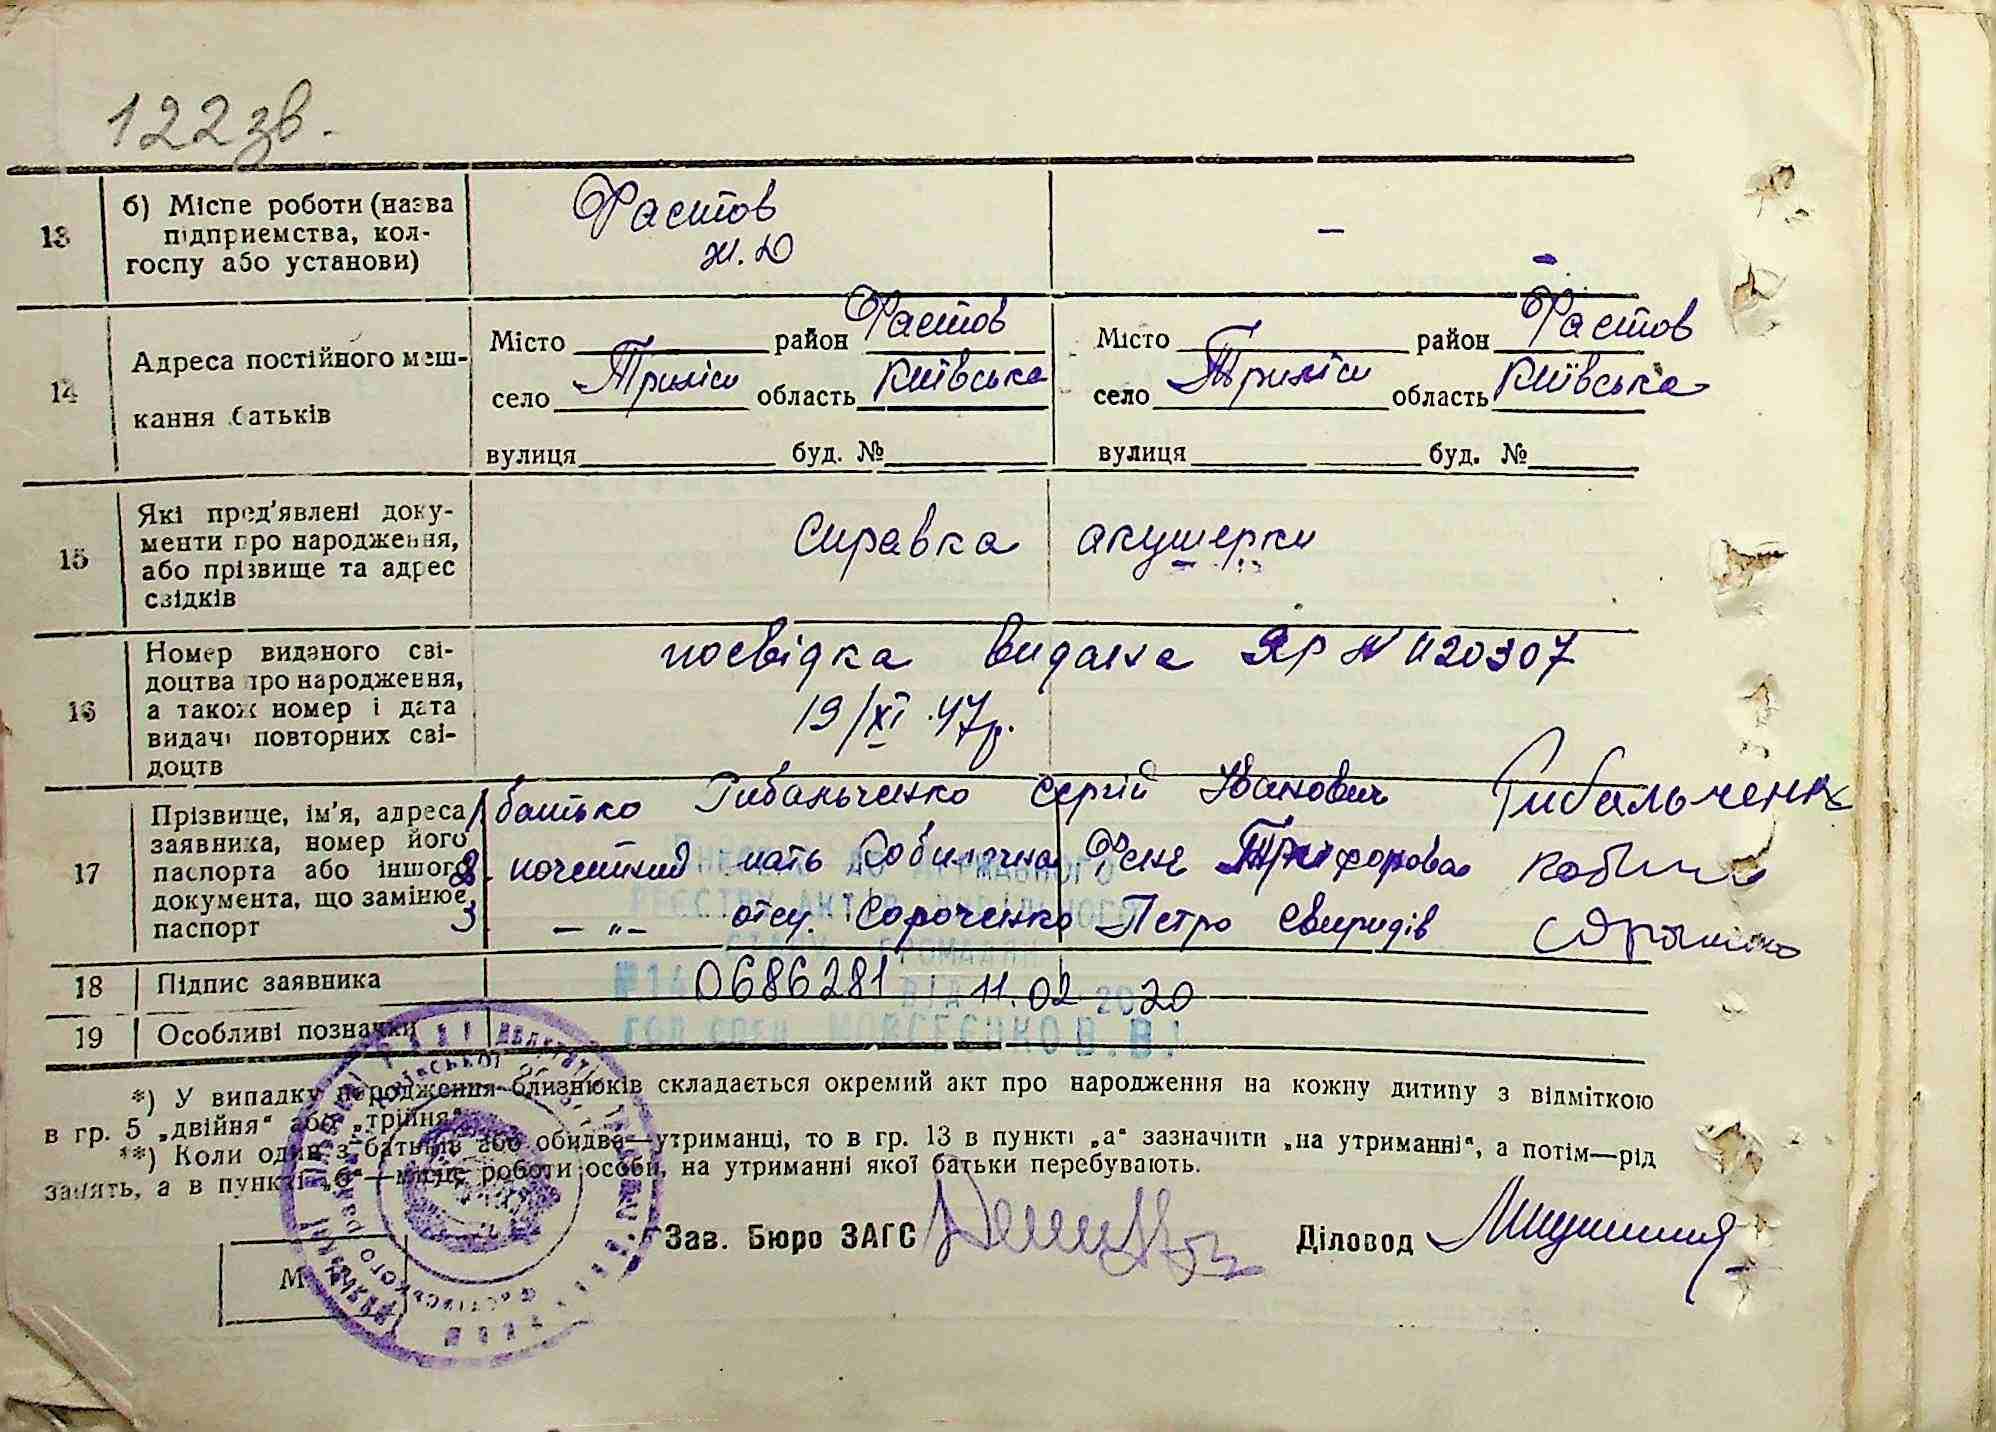 122зв.
13
б) Місце роботи (назва
підприємства, кол-
госпу або установи)
Фастов
ж.д
–
–
14
Адреса постійного меш-
кання батьків
Місто район Фастов
село Триліси область Київська
вулиця буд. №
Місто район Фастов
село Триліси область Київська
вулиця буд. №
15
Які пред'явлені доку-
менти про народження,
або прізвище та адрес
свідків
Справка акушерки
16
Номер виданого сві-
доцтва про народження,
а також номер і дата
видачі повторних сві-
доцтв
посвідка видана ЯР № 020307
19/XI 47р.
17
Прізвище, ім'я, адреса
заявника, номер його
паспорта або іншого
документа, що замінює
паспорт
1. батько Рибальченко Сергій Іванович Рибальченк
2. почетний мать Фене
3. – „ – отец Сороченко Петро Свиридів
18
Підпис заявника
ДО ДЕРЖАВНОГО
РЕЄСТРУ АКТІВ ЦИВІЛЬНОГО
СТАНУ ГРОМАДЯН
№14 0686281 ВІД 11.02 2020
ГОЛ.СПЕЦ. МОЙСЕЄНКО В.В.
19
Особливі позначки
*) У випадку народження близнюків складається окремий акт про народження на кожну дитину з відміткою
в гр. 5 „двійня“ або „трійня“.
**) Коли один з батьків або обидва—утриманці, то в гр. 13 в пункті „а“ зазначити „на утриманні“, а потім—рід
занять, а в пункті „б“—місце роботи особи, на утриманні якої батьки перебувають.
Зав. Бюро ЗАГС
Діловод
М